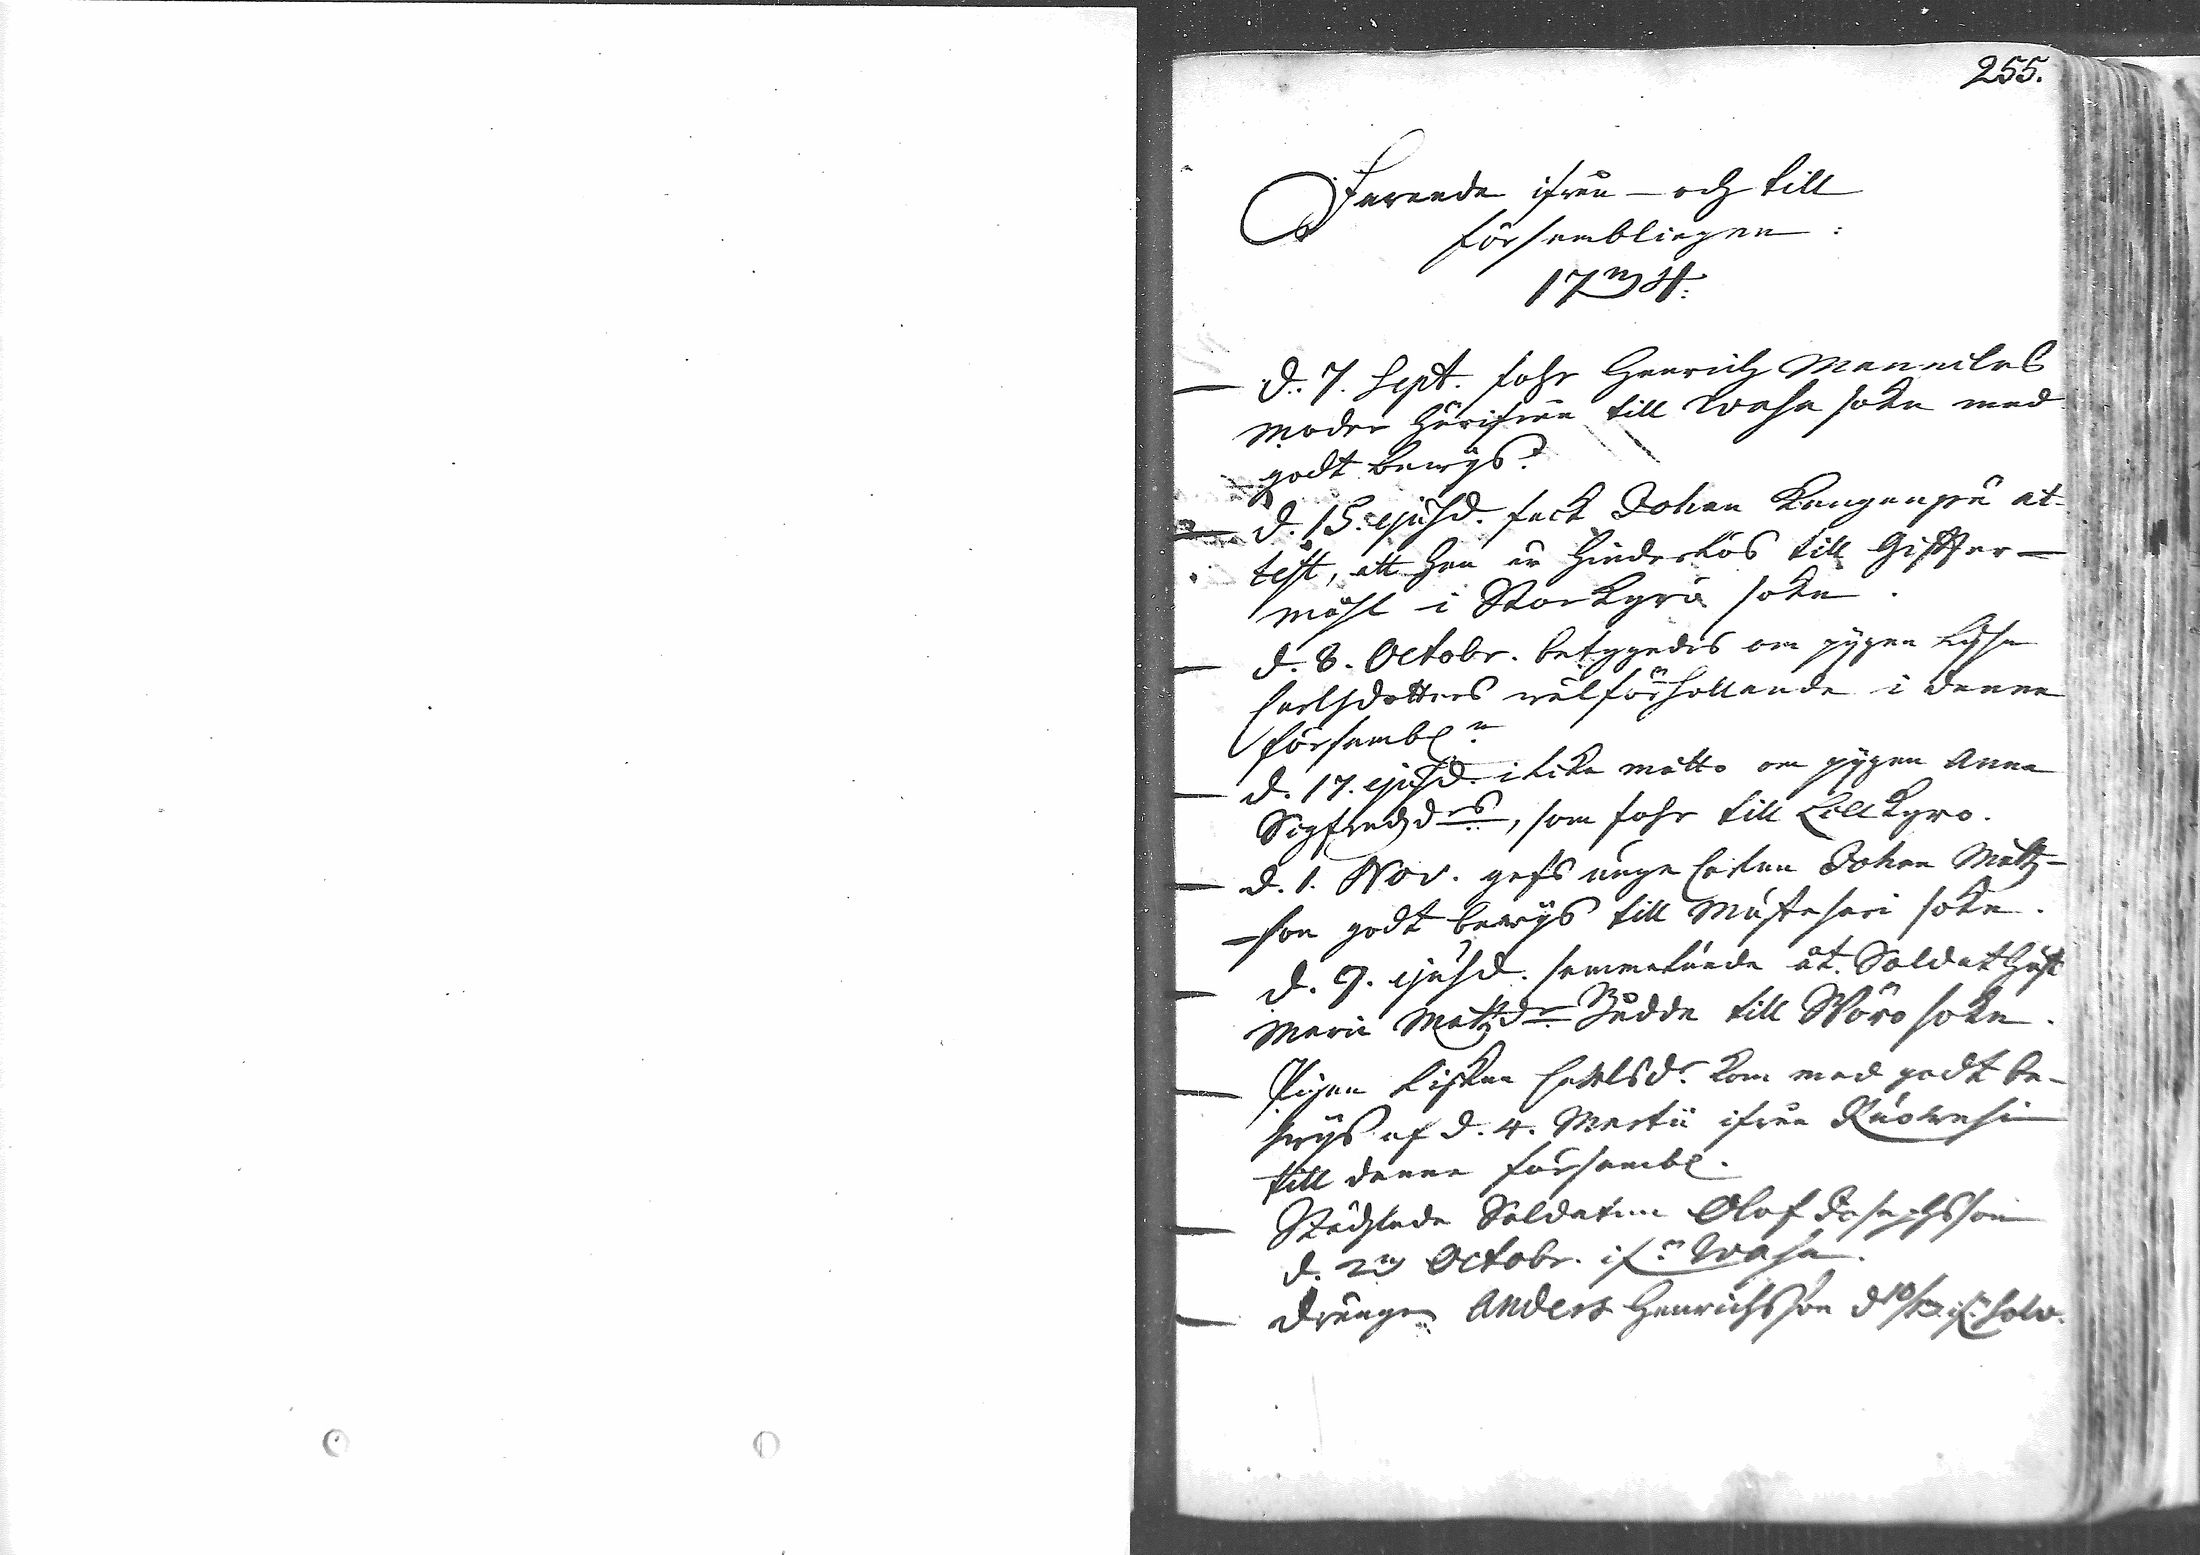 255.
Farande ifrån - och till
församblingen:
17 4:
d. 7. Sept. fohr Henrich Mannilas
moder härifrån till Wasa sokn med
godt bewijs.
d. 15. ejusd. feck Johan Kangenpä at-
test, att han är hinderlös till Gifter-
möhl i Storkyro sokn.
d. 8. Octobr. betygedes om pygan Lisa
Carlsdotters wälförhollande i denna
försambln.
d. 17. ejusd. i lika motto om pygan Anna
Sigfredzdrs, som fohr till Lillkyro.
d. 1. Nov. gafs unga Carlen Johan Matz-
son godt bewijs till Mustasari sokn.
d. 9. ejusd. sammalunda åt Soldat Hust
Maria Matzdr Budda till Wörå sokn.
Pigan Liskan Carlsdr. kom med godt be-
wijs af d. 4. Martii ifrån Ruowesi
till denna försambl.
Städslade Soldaten Olof Josephsson
d. Octobr. ifn Wasa.
drängen Anders Henrichsson d